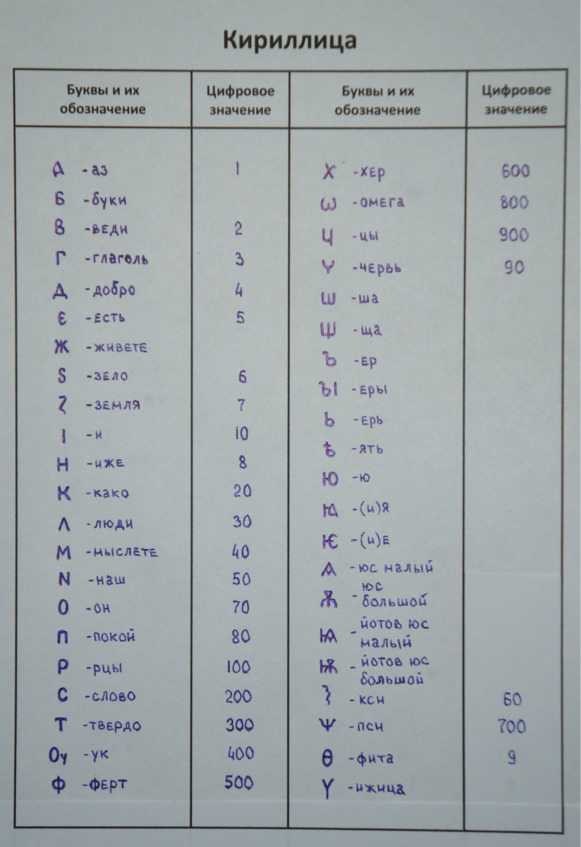 Кириллица
Буквы и их обозначение Цифровое значение Буквы и их обозначение Цифровое значение
А -аз 1
Б -буки
В -веди 2
Г -глаголь 3
Д -добро 4
Є -есть 5
Ж -живете
Ѕ -зело 6
Ꙁ -земля 7
І -и 10
Н -иже 8
К -како 20
Л -люди 30
М -мыслете 40
N -наш 50
О -он 70
П -покой 80
Р -рцы 100
С -слово 200
Т -твердо 300
Оу -ук 400
Ф -ферт 500
Х -хер 600
Ѡ -омега 800
Ц -цы 900
Ч -червь 90
Ш -ша
Щ -ща
Ъ -ер
ЪІ -еры
Ь -ерь
Ѣ -ять
Ю -ю
Ꙗ -(и)я
Ѥ -(и)е
Ѧ -юс малый
Ѫ -юс большой
Ѩ -йотов юс малый
Ѭ -йотов юс большой
Ѯ -кси 60
Ѱ -пси 700
Ѳ -фита 9
Ѵ -ижица